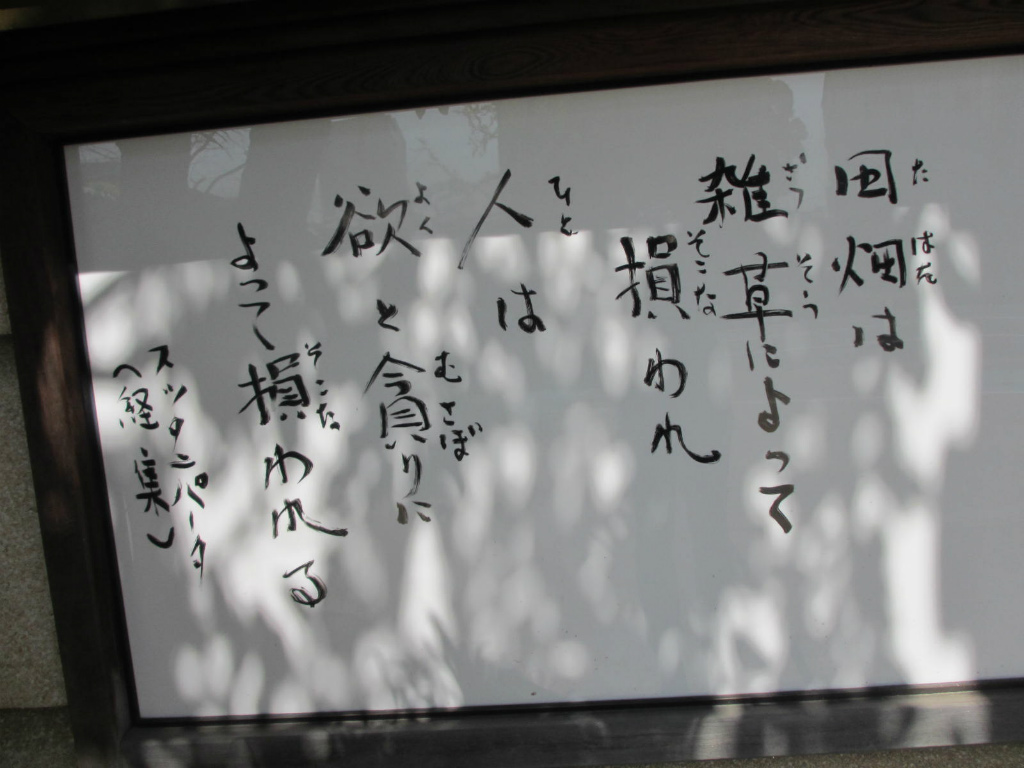 田畑は
たはた
雑草によって
ざっそう
損われ
そこな
人は
ひと
欲と貪りに
よくむさぼ
よって損われる
そこな
スッタニパータ
(経集)